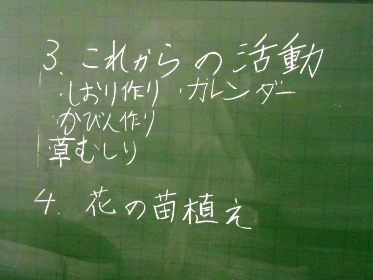 3. これからの活動
・しおり作り ・カレンダー
・かびん作り
・草むしり
4. 花の苗植え